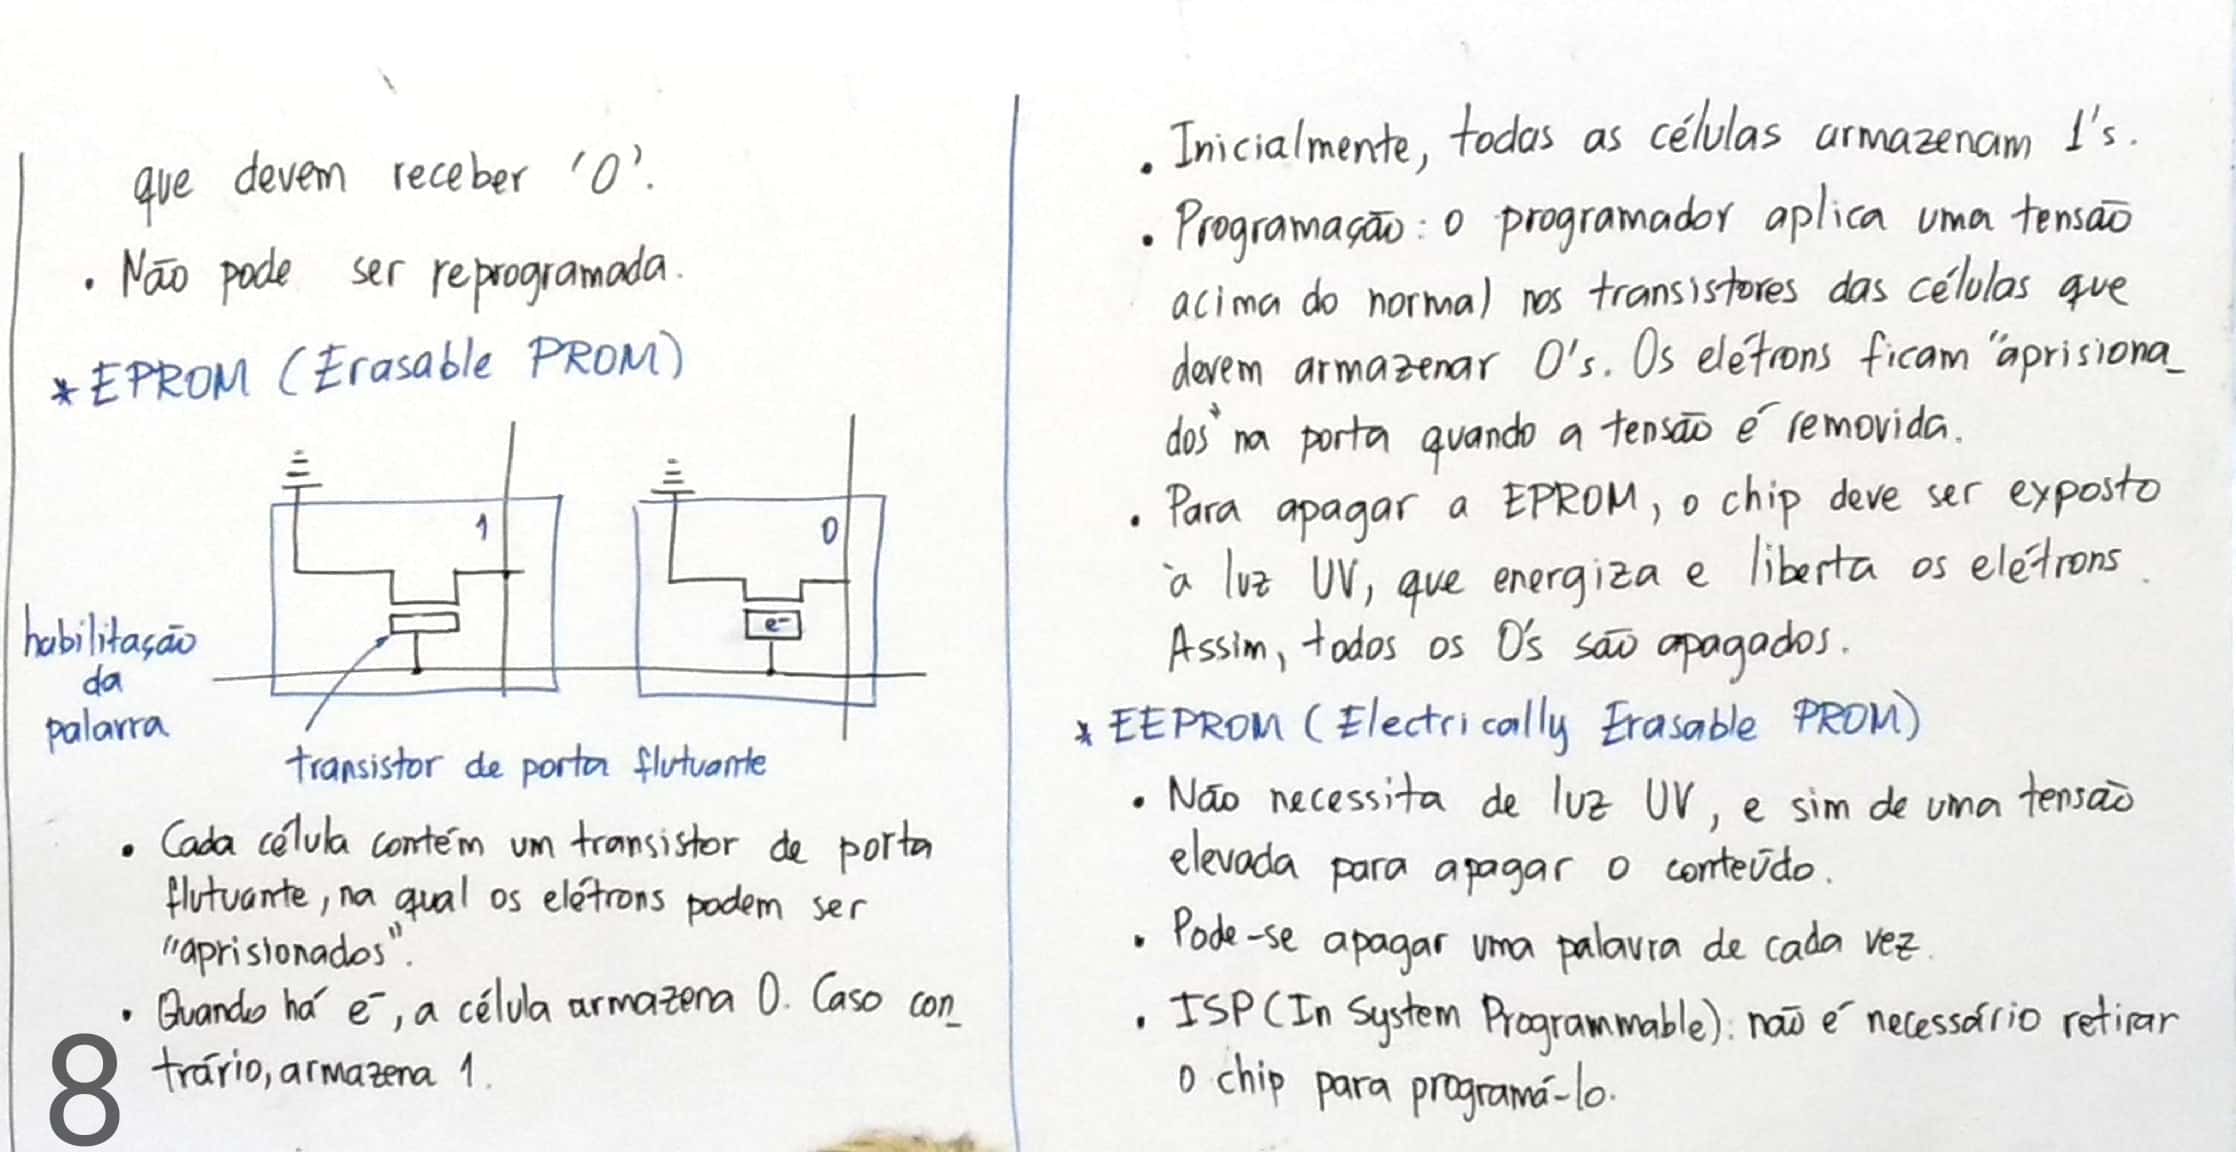 que devem receber '0'.
. Não pode ser reprogramada.
* EPROM (Erasable PROM)
1
0
e⁻
habilitação
da
palavra
transistor de porta flutuante
• Cada célula contém um transistor de porta
flutuante, na qual os elétrons podem ser
"aprisionados".
• Quando há e⁻, a célula armazena 0. Caso con_
trário, armazena 1.
8
. Inicialmente, todas as células armazenam 1's.
• Programação: o programador aplica uma tensão
acima do normal nos transistores das células que
devem armazenar 0's. Os elétrons ficam "aprisiona_
dos" na porta quando a tensão é removida.
• Para apagar a EPROM, o chip deve ser exposto
à luz UV, que energiza e liberta os elétrons.
Assim, todos os 0's são apagados.
* EEPROM (Electrically Erasable PROM)
• Não necessita de luz UV, e sim de uma tensão
elevada para apagar o conteúdo.
• Pode-se apagar uma palavra de cada vez.
• ISP (In System Programmable): não é necessário retirar
o chip para programá-lo.